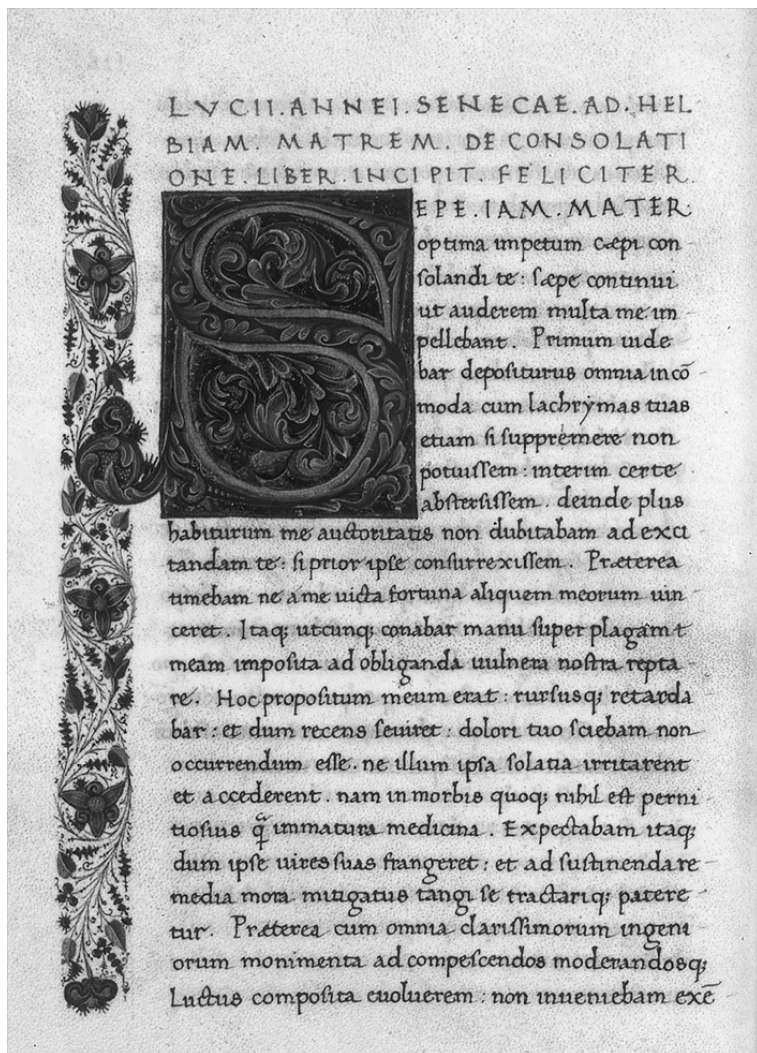 LVCII.ANNEI.SENECAE.AD.HEL
BIAM. MATREM. DE CONSOLATI
ONE.LIBER.INCIPIT.FELICITER.
S EPE.IAM.MATER.
optima impetum cæpi con
solandi te: sæpe continui
ut auderem multa me im
pellebant. Primum uide
bar depositurus omnia incō
moda cum lachrẏmas tuas
etiam si supprẹmere non
potuissem: interim certe
abstersissem. deinde plus
habiturum me auctoritatis non dubitabam ad exci
tandam te: si prior ipse consurrexissem. Præterea
timebam ne a me uicta fortuna aliquem meorum uin
ceret. Itaq; utcunq; conabar manu super plagam
meam imposita ad obliganda uulnera nostra repta
re. Hoc propositum meum erat: rursusq; retarda
bar: et dum recens seuiret: dolori tuo sciebam non
occurrendum esse. ne illum ipsa solatia irritarent
et accederent. nam in morbis quoq; nihil est perni
tiosius q̃ immatura medicina. Expectabam itaq;
dum ipse uires suas frangeret: et ad sustinenda re
media mora mitigatus tangi se tractariq; patere
tur. Præterea cum omnia clarissimorum ingeni
orum monimenta ad compescendos moderandosq;
Luctus composita euoluerem: non inueniebam exē